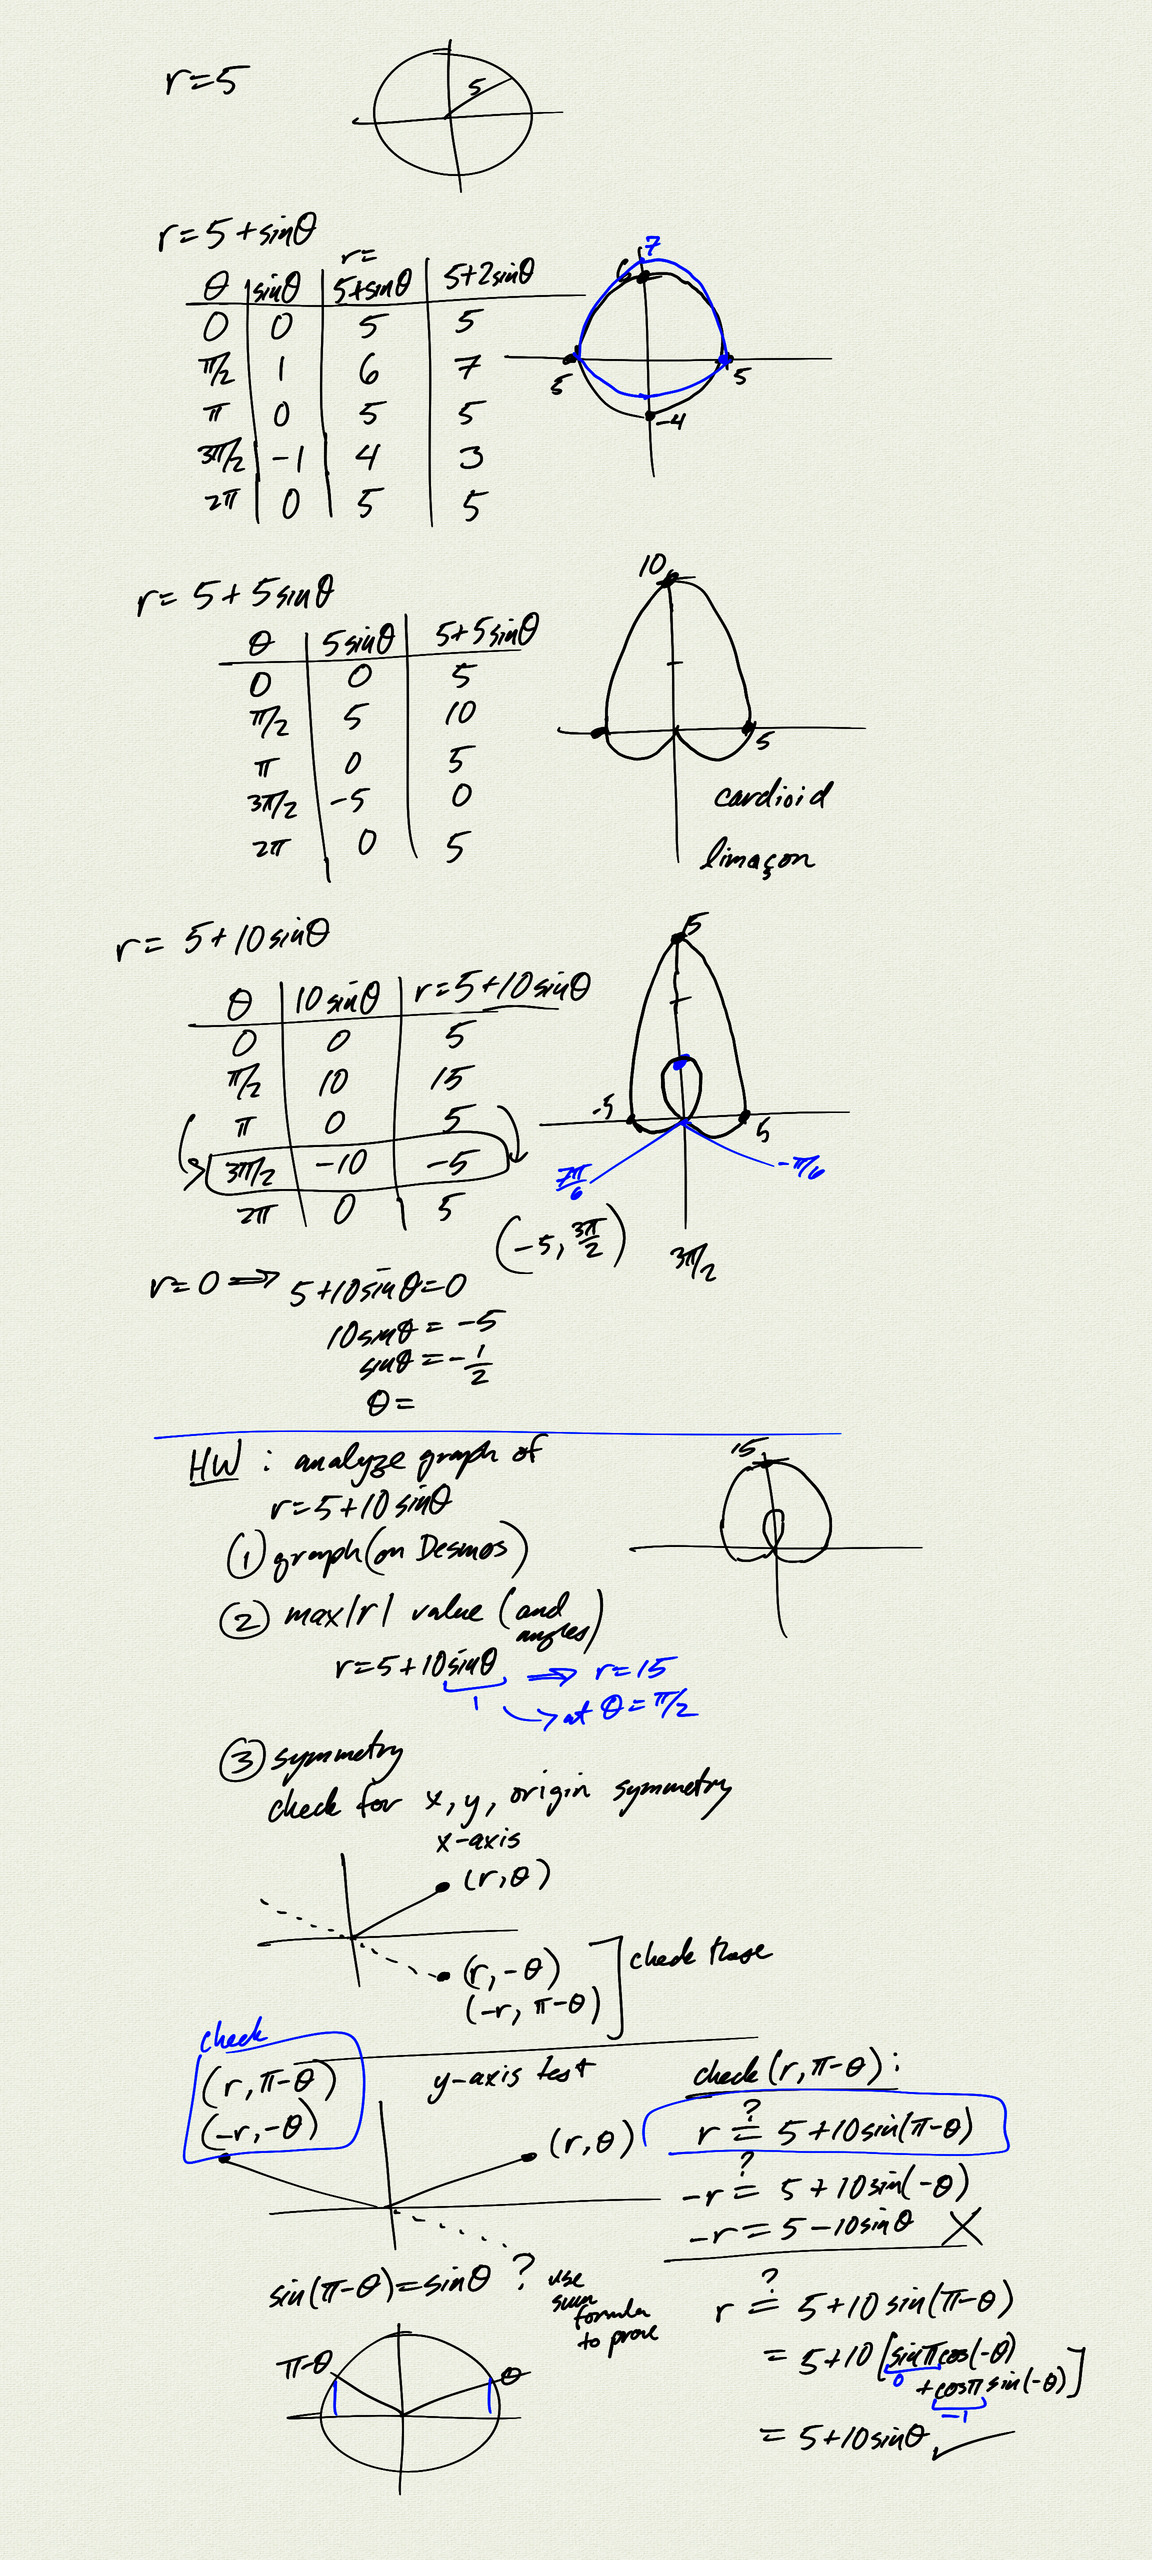 r=5
5
r=5+sinθ
r=
θ sinθ 5+sinθ 5+2sinθ
0 0 5 5
π/2 1 6 7
π 0 5 5
3π/2 -1 4 3
2π 0 5 5
7
6
5 5
-4
r=5+5sinθ
θ 5sinθ 5+5sinθ
0 0 5
π/2 5 10
π 0 5
3π/2 -5 0
2π 0 5
10
5
cardioid
limaçon
r=5+10sinθ
θ 10sinθ r=5+10sinθ
0 0 5
π/2 10 15
π 0 5
3π/2 -10 -5
2π 0 5
15
-5 5
7π/6 -π/6
(-5, 3π/2) 3π/2
r=0 ⟹ 5+10sinθ=0
10sinθ = -5
sinθ = -1/2
θ=
HW: analyze graph of
r=5+10sinθ
15
① graph (on Desmos)
② max|r| value (and angles)
r=5+10sinθ ⟹ r=15
1 → at θ=π/2
③ symmetry
check for x, y, origin symmetry
x-axis
(r,θ)
(r,-θ)
(-r, π-θ)
check these
check
(r, π-θ)
(-r, -θ)
y-axis test
(r,θ)
check (r, π-θ):
r ?= 5+10sin(π-θ)
-r ?= 5+10sin(-θ)
-r = 5-10sinθ X
sin(π-θ)=sinθ ?
use
sum
formula
to prove
π-θ θ
r ?= 5+10sin(π-θ)
= 5+10[sinπcos(-θ)
0 +cosπsin(-θ)]
-1
= 5+10sinθ ✓